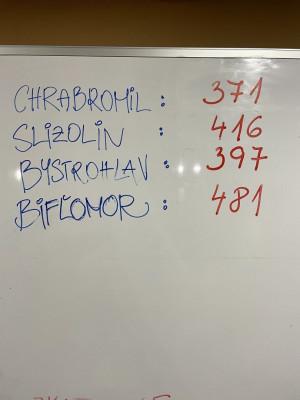 CHRABROMIL: 371
SLIZOLIN : 416
BYSTROHLAV: 397
BIFLOMOR : 481